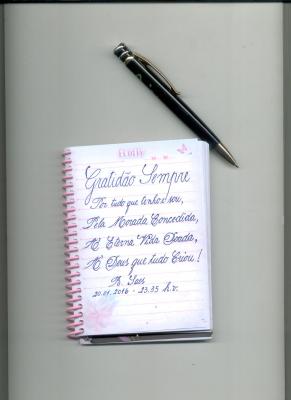 Gratidão Sempre
Por tudo que tenho e sou,
Pela Morada Concedida,
A Eterna Vida Doada,
A Deus que tudo Criou!
20.01.2016 - 23.35 h.v.